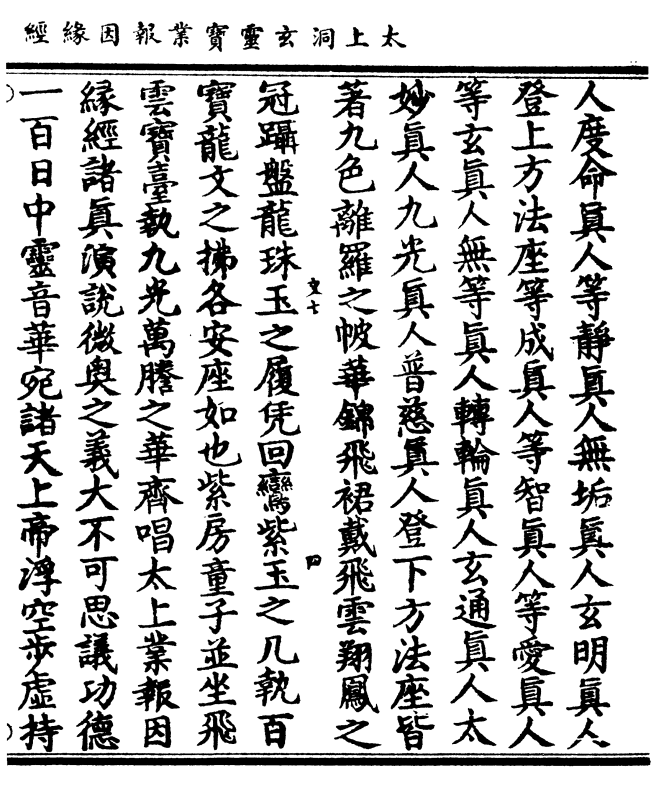 太上洞玄靈寶業報因緣經
人度命眞人等靜眞人無垢眞人玄明眞人
登上方法座等成眞人等智眞人等愛眞人
等玄眞人無等眞人轉輪眞人玄通眞人太
妙眞人九光眞人普慈眞人登下方法座皆
著九色離羅之帔華錦飛裙戴飛雲翔鳳之
文七 四
冠躡盤龍珠玉之履凭回鸞紫玉之几執百
寶龍文之拂各安座如也紫房童子並坐飛
雲寶臺執九光萬騰之華齊唱太上業報因
緣經諸眞演說微奥之義大不可思議功德
一百日中靈音華宛諸天上帝浮空步虛持